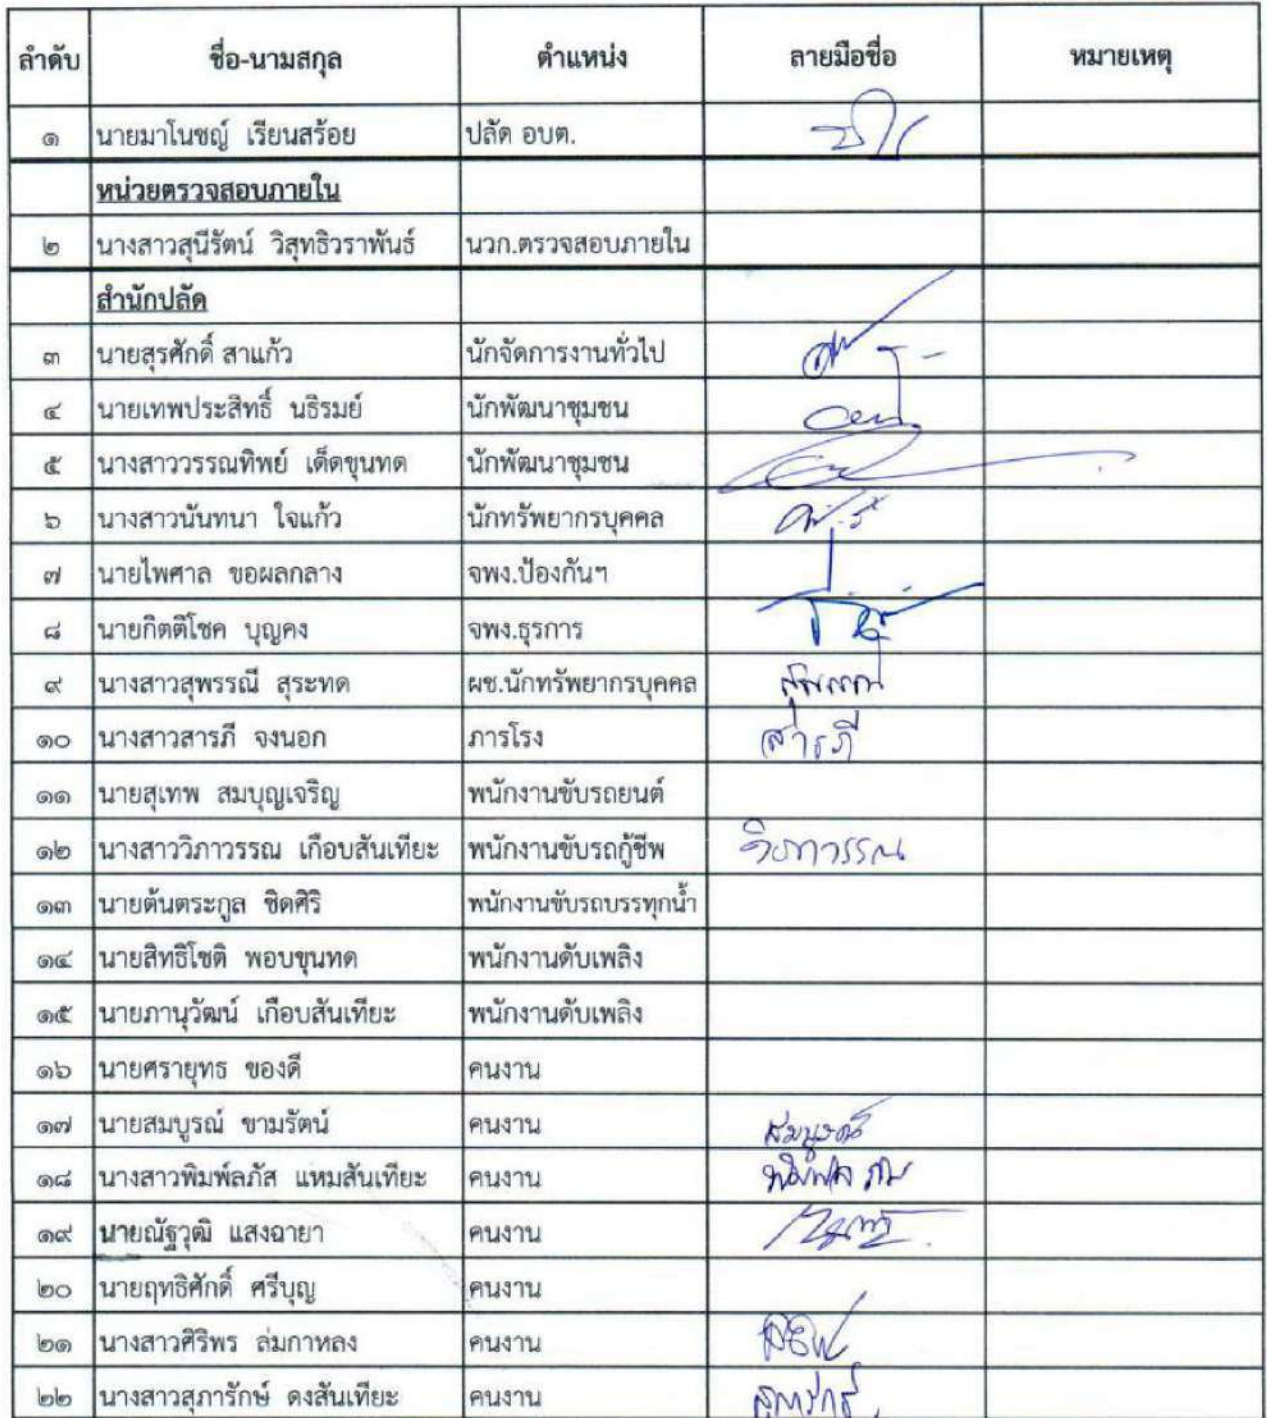 ลำดับ ชื่อ-นามสกุล ตำแหน่ง ลายมือชื่อ หมายเหตุ
๑ นายมาโนชญ์ เรียนสร้อย ปลัด อบต.
หน่วยตรวจสอบภายใน
๒ นางสาวสุนีรัตน์ วิสุทธิวราพันธ์ นวก.ตรวจสอบภายใน
สำนักปลัด
๓ นายสุรศักดิ์ สาแก้ว นักจัดการงานทั่วไป
๔ นายเทพประสิทธิ์ นธิรมย์ นักพัฒนาชุมชน
๕ นางสาววรรณทิพย์ เด็ดขุนทด นักพัฒนาชุมชน
๖ นางสาวนันทนา ใจแก้ว นักทรัพยากรบุคคล
๗ นายไพศาล ขอผลกลาง จพง.ป้องกันฯ
๘ นายกิตติโชค บุญคง จพง.ธุรการ
๙ นางสาวสุพรรณี สุระทด ผช.นักทรัพยากรบุคคล สุพรรณี
๑๐ นางสาวสารภี จงนอก ภารโรง สารภี
๑๑ นายสุเทพ สมบุญเจริญ พนักงานขับรถยนต์
๑๒ นางสาววิภาวรรณ เกือบสันเทียะ พนักงานขับรถกู้ชีพ วิภาวรรณ
๑๓ นายต้นตระกูล ชิดศิริ พนักงานขับรถบรรทุกน้ำ
๑๔ นายสิทธิโชติ พอบขุนทด พนักงานดับเพลิง
๑๕ นายภานุวัฒน์ เกือบสันเทียะ พนักงานดับเพลิง
๑๖ นายศรายุทธ ของดี คนงาน
๑๗ นายสมบูรณ์ ขามรัตน์ คนงาน สมบูรณ์
๑๘ นางสาวพิมพ์ลภัส แหมสันเทียะ คนงาน
๑๙ นายณัฐวุฒิ แสงฉายา คนงาน
๒๐ นายฤทธิศักดิ์ ศรีบุญ คนงาน
๒๑ นางสาวศิริพร ล่มกาหลง คนงาน
๒๒ นางสาวสุภารักษ์ ดงสันเทียะ คนงาน